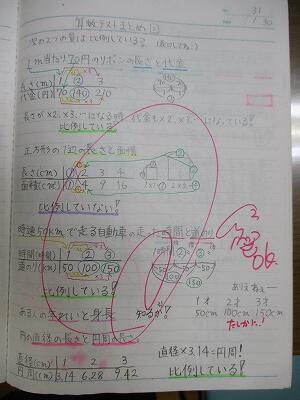 31
1 30
算数テストまとめ②
次の2つの量は比例している?
1m当たり70円のリボンの長さと代金
長さ(m) 1 2 3
代金(円) 70 140 210
長さが×2、×3、…になる時、代金も×2、×3、…になっている!
比例している!
正方形の1辺の長さと面積
長さ(cm) 1 2 3 4
面積(cm²) 1 4 9 16
1×1=① 2×2=④
比例していない!
時速50kmで走る自動車の走った時間と道のり
時間(時間) 1 2 3
道のり(km) 50 100 150
比例している!
1時間 ② ③
50 50 50
100
150
ある人の年れいと身長
1才 2才 3才
50cm 100cm 150cm
たしかに…!
円の直径の長さと円周の長さ
直径(cm) 1 2 3
円周(cm) 3.14 6.28 9.42
直径×3.14=円周!
比例している!